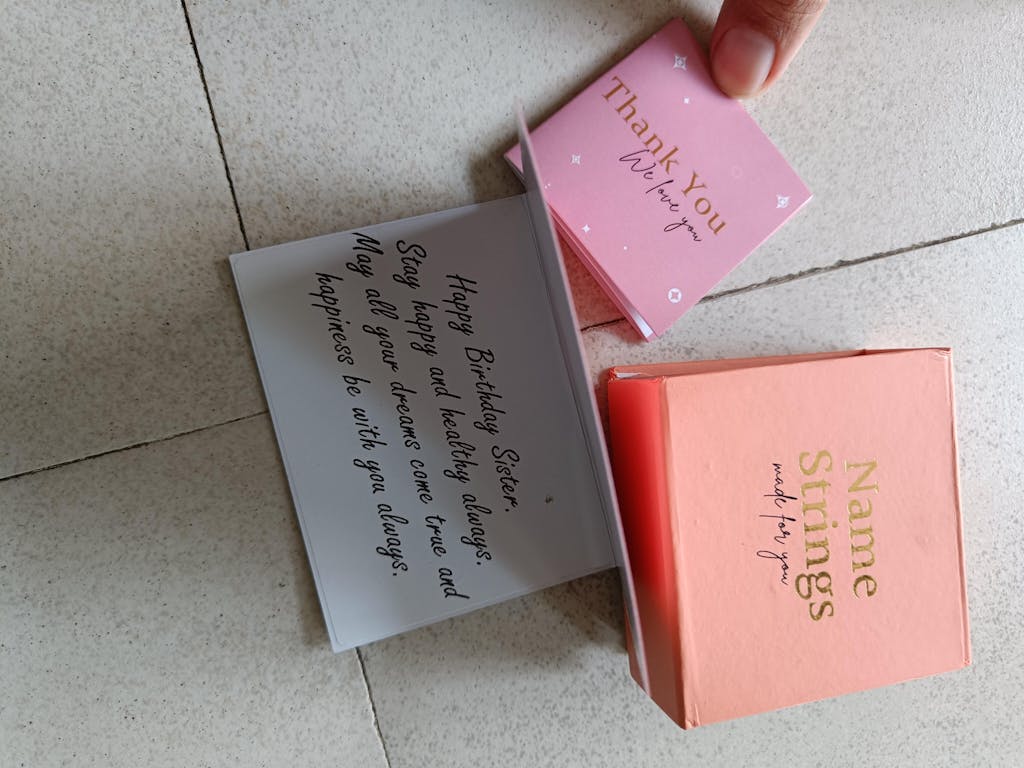 Thank You
We love you
Happy Birthday Sister.
Stay happy and healthy always.
May all your dreams come true and
happiness be with you always.
Name
Strings
made for you